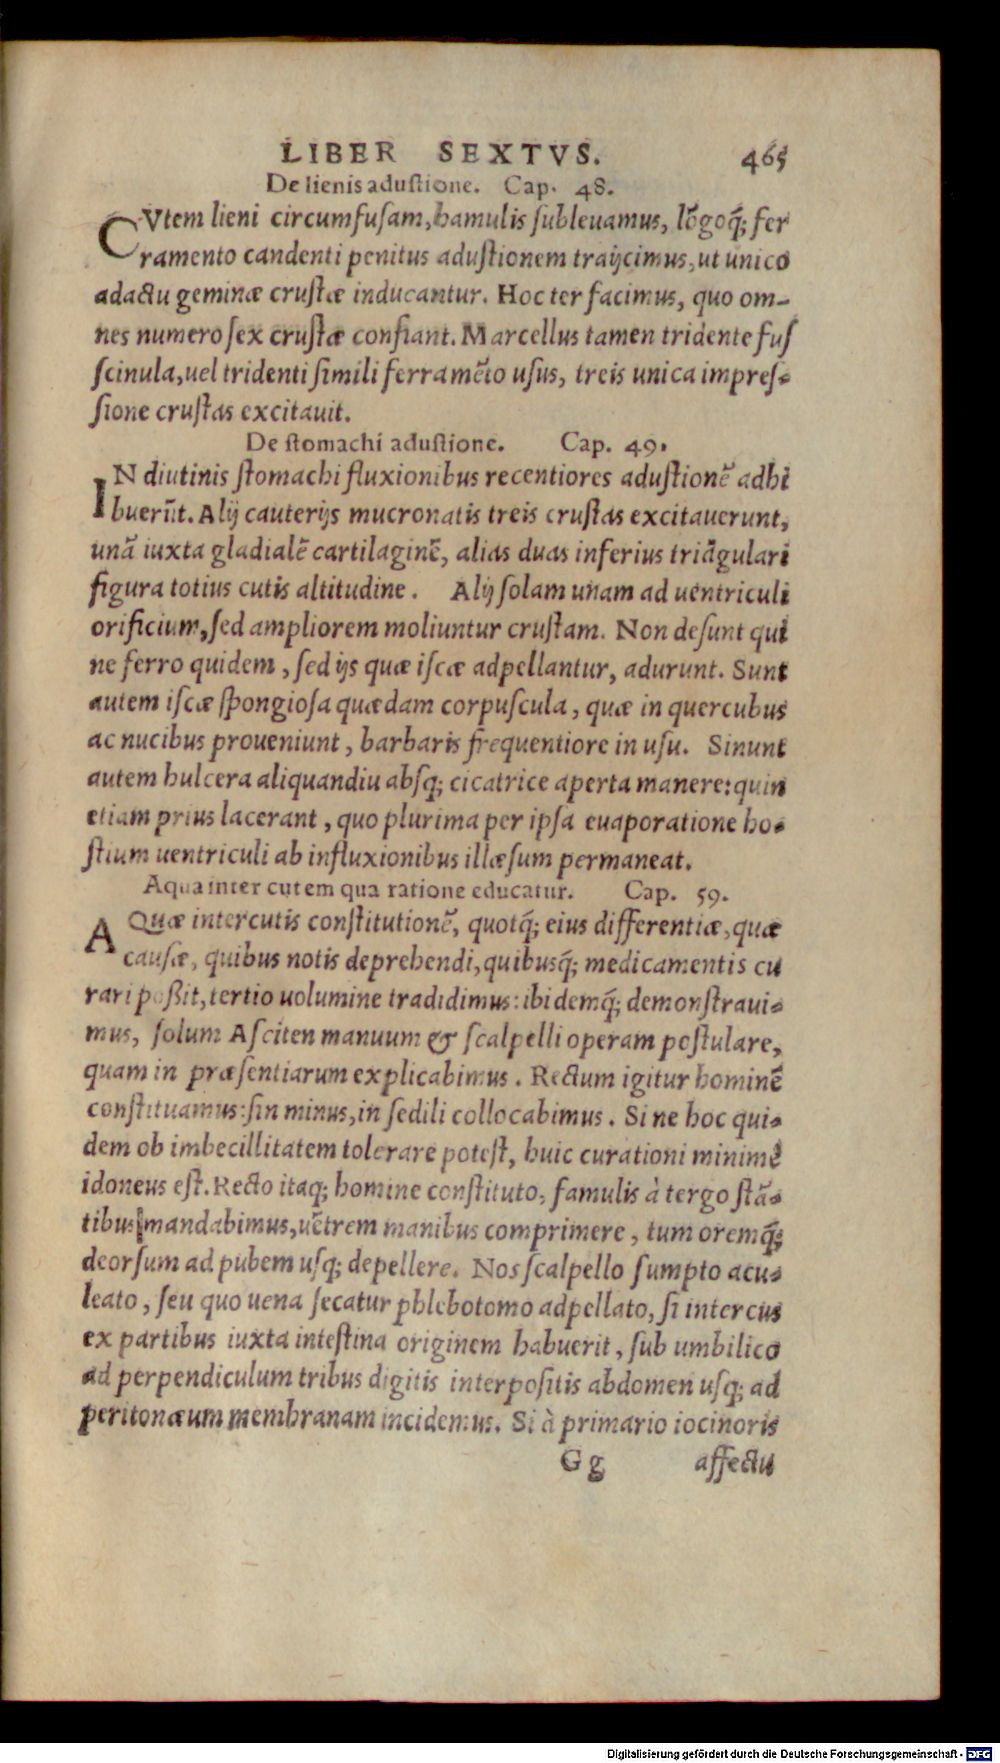 LIBER SEXTVS. 465
De lienis adustione. Cap. 48.
CVtem lieni circumfusam, hamulis subleuamus, lõgoq́; fer
ramento candenti penitus adustionem traijcimus, ut unico
adactu geminæ crustæ inducantur. Hoc ter facimus, quo om-
nes numero sex crustæ confiant. Marcellus tamen tridente fus
scinula, uel tridenti simili ferramẽto usus, treis unica impres-
sione crustas excitauit.
De stomachi adustione. Cap. 49.
IN diutinis stomachi fluxionibus recentiores adustionẽ adhi
buerũt. Alij cauterijs mucronatis treis crustas excitauerunt,
unã iuxta gladialẽ cartilaginẽ, alias duas inferius triãgulari
figura totius cutis altitudine. Alij solam unam ad uentriculi
orificium, sed ampliorem moliuntur crustam. Non desunt qui
ne ferro quidem, sed ijs quæ iscæ adpellantur, adurunt. Sunt
autem iscæ spongiosa quædam corpuscula, quæ in quercubus
ac nucibus proueniunt, barbaris frequentiore in usu. Sinunt
autem hulcera aliquandiu absq; cicatrice aperta manere: quin
etiam prius lacerant, quo plurima per ipsa euaporatione ho-
stium uentriculi ab influxionibus illæsum permaneat.
Aqua inter cutem qua ratione educatur. Cap. 59.
AQuæ intercutis constitutionẽ, quotq́; eius differentiæ, quæ
causæ, quibus notis deprehendi, quibusq́; medicamentis cu
rari poßit, tertio uolumine tradidimus: ibidemq́; demonstraui-
mus, solum Asciten manuum & scalpelli operam postulare,
quam in præsentiarum explicabimus. Rectum igitur hominẽ
constituamus: sin minus, in sedili collocabimus. Si ne hoc qui-
dem ob imbecillitatem tolerare potest, huic curationi minimè
idoneus est. Recto itaq; homine constituto, famulis à tergo stã-
tibus mandabimus, uẽtrem manibus comprimere, tumoremq́;
deorsum ad pubem usq; depellere. Nos scalpello sumpto acu-
leato, seu quo uena secatur phlebotomo adpellato, si intercus
ex partibus iuxta intestina originem habuerit, sub umbilico
ad perpendiculum tribus digitis interpositis abdomen usq; ad
peritonæum membranam incidemus. Si à primario iocinoris
Gg affectu
Digitalisierung gefördert durch die Deutsche Forschungsgemeinschaft - DFG